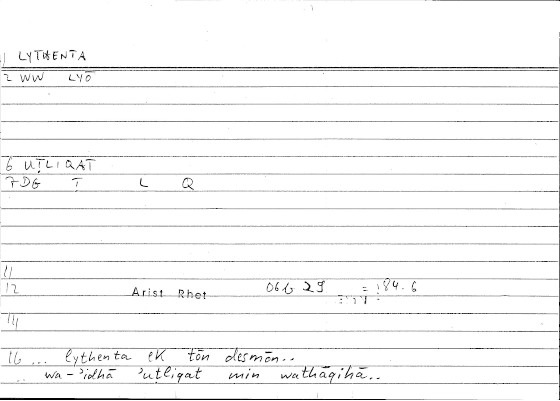 1 LYTHENTA
2 WW LYŌ
6 UṬLIQAT
7 DG Ṭ L Q
11
12 Arist Rhet 06b 29 = 184.6
14
16 ... lythenta ek tōn desmōn..
.. wa-'idhā 'uṭliqat min wathāqihā..